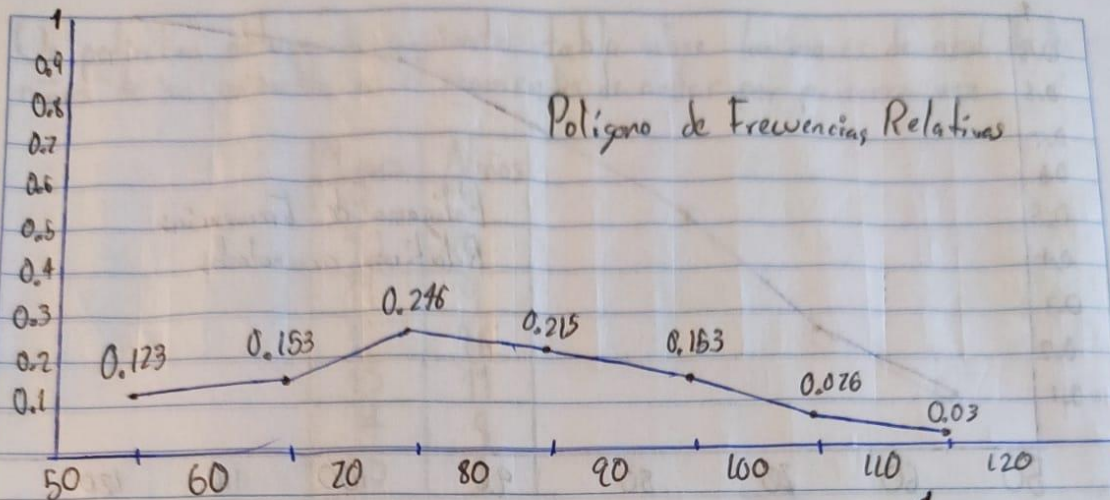 1
0.9
0.8
0.7
0.6
0.5
0.4
0.3
0.2
0.1
Polígono de Frecuencias Relativas
0.123
0.153
0.246
0.215
0.153
0.076
0.03
50 60 70 80 90 100 110 120